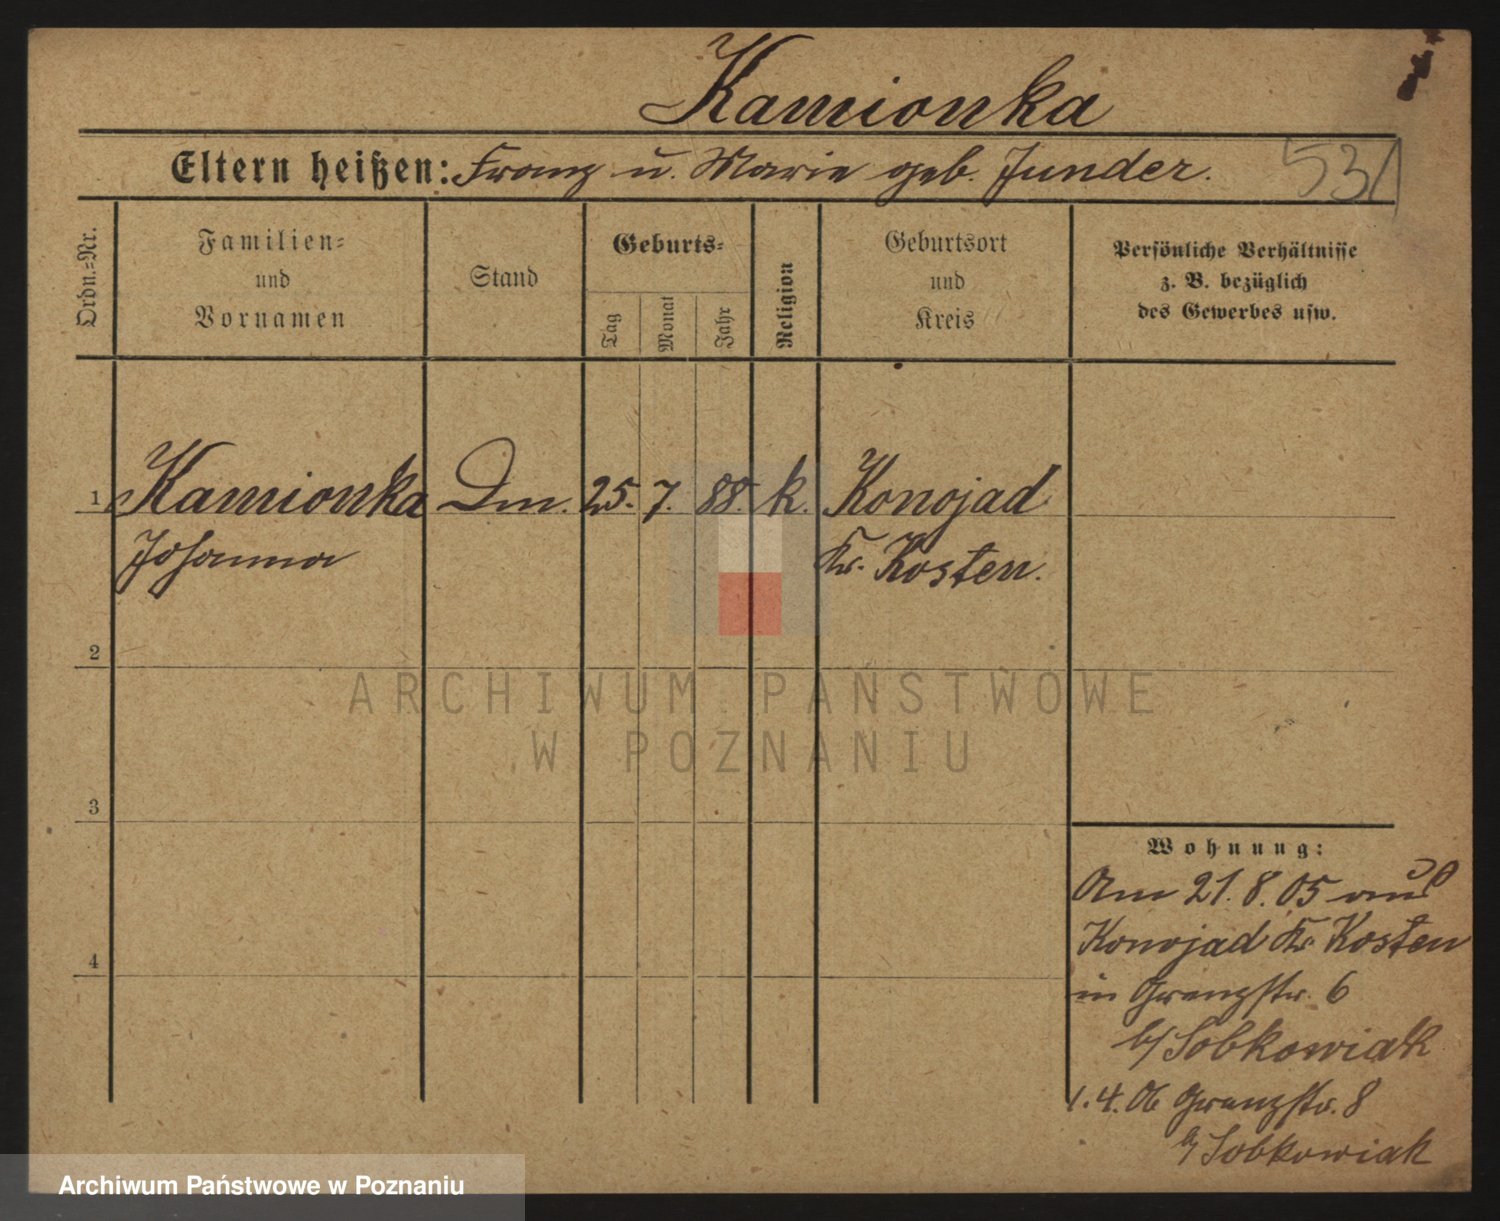 Kamionka
Eltern heißen: Franz u. Marie geb. Junder.
531
Ordn.=Nr.
Familien=
und
Vornamen
Stand
Geburts=
Tag
Monat
Jahr
Religion
Geburtsort
und
Kreis
Persönliche Verhältnisse
z. B. bezüglich
des Gewerbes usw.
1 Kamionka Dm. 25. 7. 88. k. Konojad
Johanna Kr. Kosten.
2
ARCHIWUM PAŃSTWOWE
W POZNANIU
3
Wohnung:
Am 21. 8. 05 aus
Konojad Kr. Kosten
4
in Grenzstr. 6
b/ Sobkowiak
1. 4. 06 Grenzstr. 8
b/ Sobkowiak
Archiwum Państwowe w Poznaniu